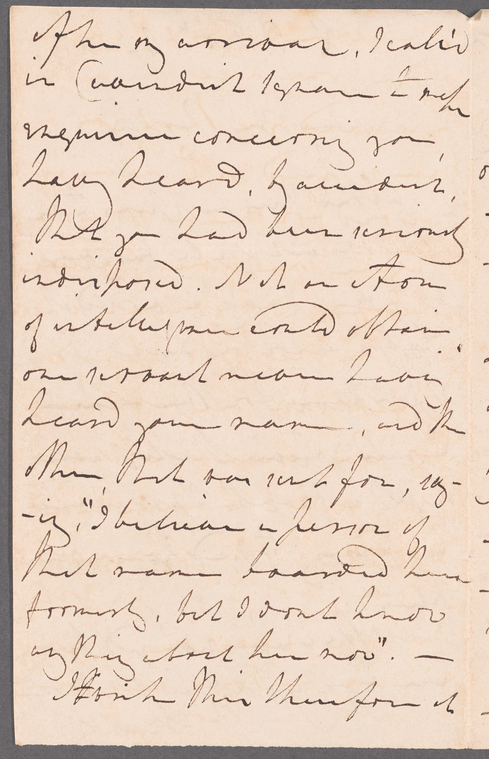 After my arrival, I call'd
in Cavendish Square to make
enquiries concerning you,
having heard, by accident,
that you had been seriously
indisposed. Not an atom
of intelligence could obtain
one servant never having
heard your name, and the
other, that was sent for, say-
-ing, "I believe a person of
that name boarded here
formerly, but I dont know
any thing about her now". —
I write this therefore at